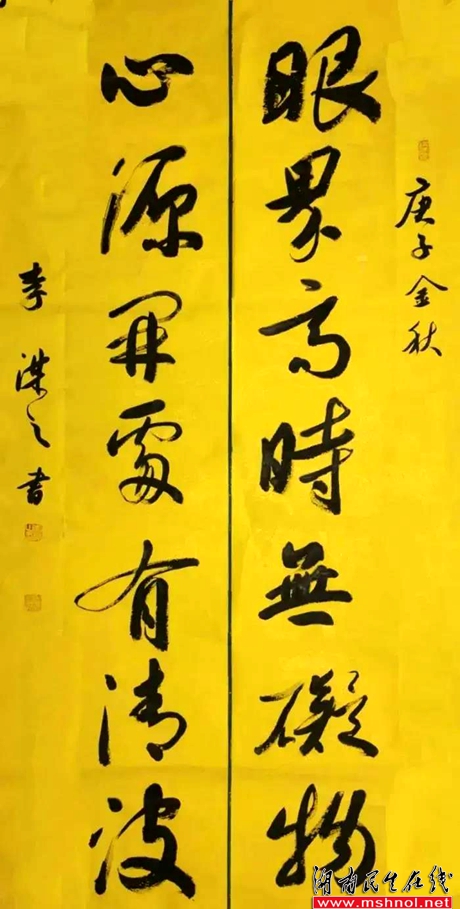 庚子金秋
眼界高時無礙物
心源開處有清波
李洪之書
湖南民生在线
www.mshnol.net